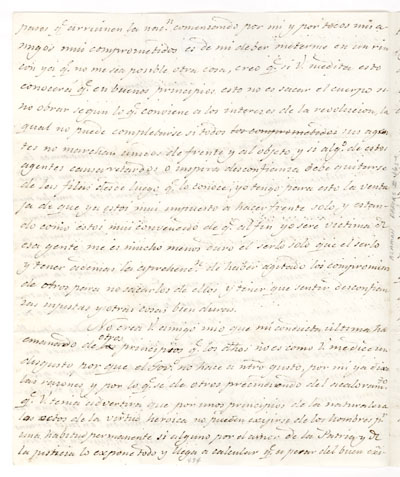 pases q.e arruinen la nac.n comensando por mi y por todos mis a
migos mui comprometidos es de mi deber meterme en un rin
con ya q.e no me sea posible otra cosa, creo q.e si V. medita esto
conocerá q.e en buenos principios esto no es sacar el cuerpo si
no obrar segun lo q.e conviene a los intereses de la revolucion, la
qual no puede completarse si todos sus agen
tes no marchan de frente y al objeto y si alg.o de estos
agentes causa retardos o inspira desconfianza debe quitarse
de las filas desde luego q.e lo conoce; yo tengo para esto la venta
ja de que ya estoi mui impuesto a hacer frente solo, y estan
do como estoi mui convencido de q.e al fin yo seré victima de
esa gente me es mucho menos duro el serlo solo que el serlo
y tener ademas la aprehens.n de haber agotado los compromisos
de otros para no sacarlos de ellos, y tener que sentir desconfian
zas injustas y otras cosas bien duras.
No crea V. amigo mio que mi conducta ultima ha
emanado de otros principios q.e los dhos no es como V. me dice un
disgusto por que el otro no hace a ntro gusto, por mi ya dixe
las razones y por lo q.e se de otros precindiendo del
q.e V. tema advierta que por unos principios de la naturaleza
los actos de la virtud heroica no pueden exijirse de los hombres p.r
una habitud permanente si alguno por el amor de la Patria y de
la justicia lo expone todo y llega a calcular q.e a pesar del buen exi-